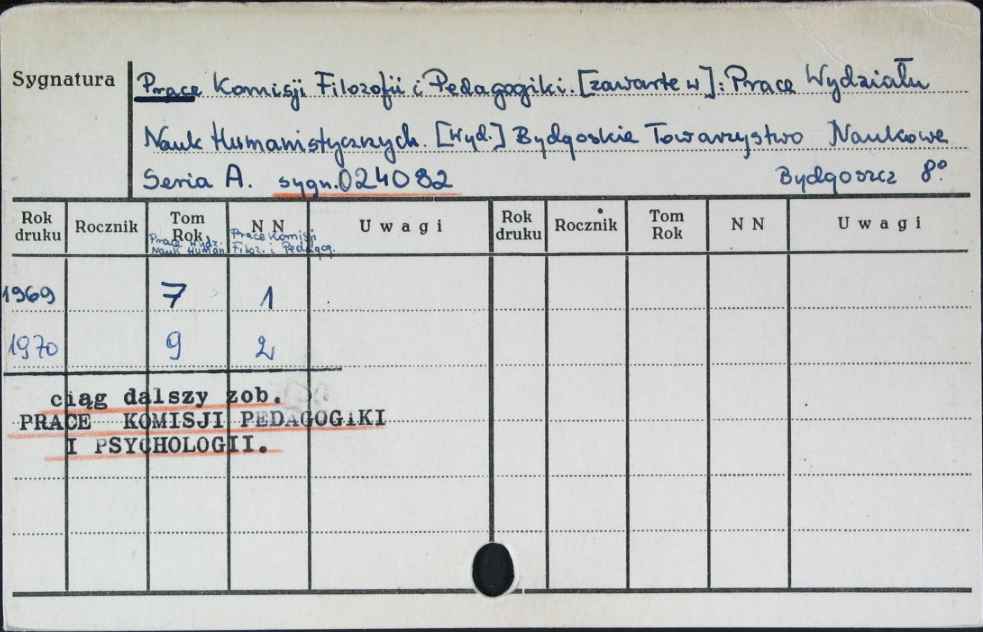 Sygnatura Prace Komisji Filozofii i Pedagogiki. [zawarte w]: Prace Wydziału
Nauk Humanistycznych. [Wyd.] Bydgoskie Towarzystwo Naukowe
Seria A. sygn. 024082 Bydgoszcz 8°
Rok druku Rocznik Tom Rok N N Uwagi Rok druku Rocznik Tom Rok N N Uwagi
Prace Wydz. Nauk Human. Prace Komisji Filoz. i Pedagog.
1969 7 1
1970 9 2
ciąg dalszy zob.
PRACE KOMISJI PEDAGOGIKI
I PSYCHOLOGII.